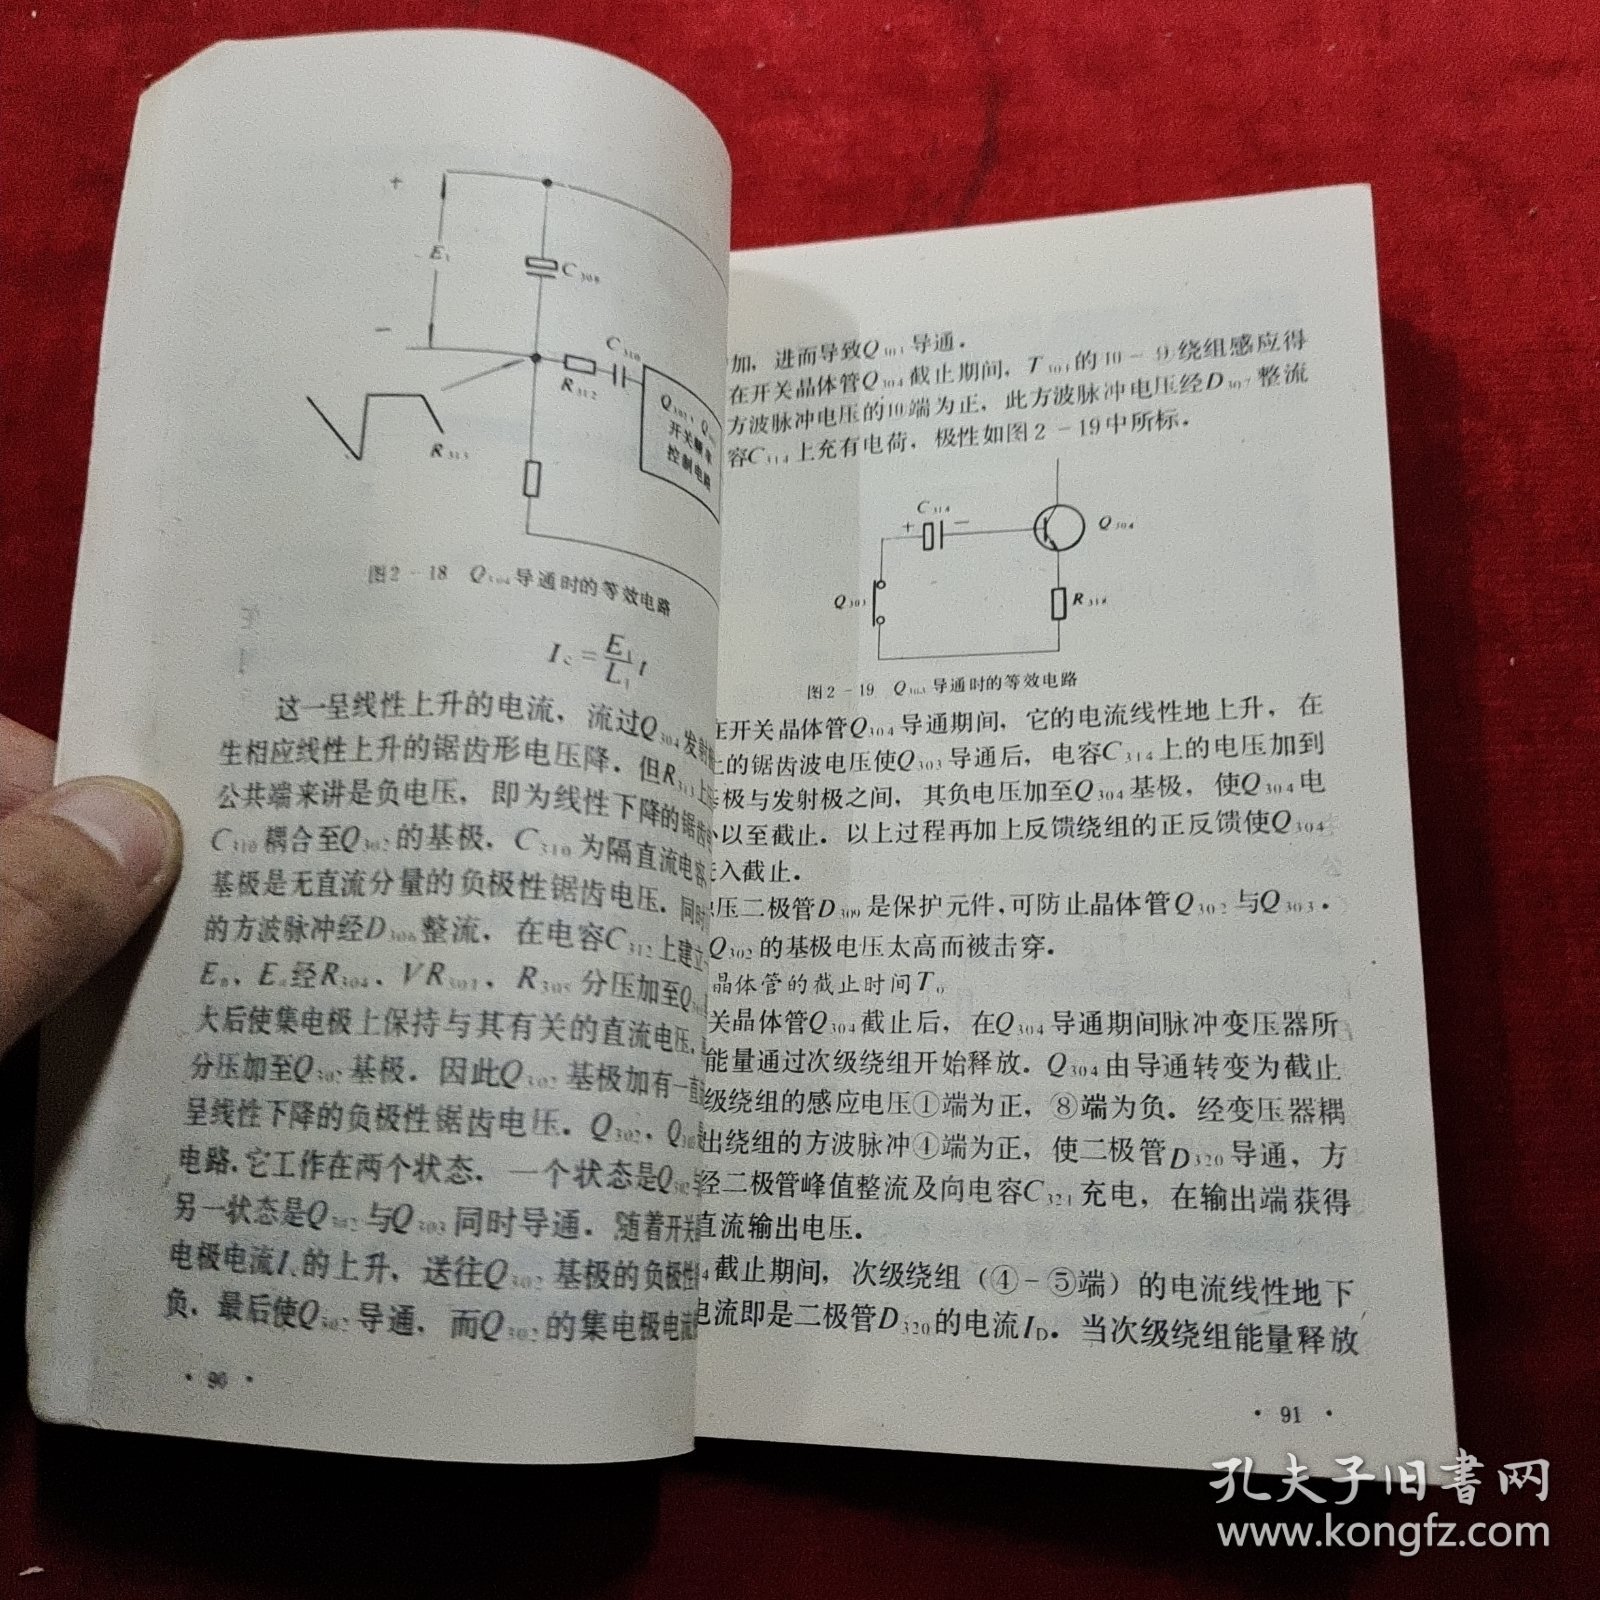 +
E₁
C₃₀₉
−
C₃₁₀
R₃₁₂
开关频率
控制电路
R₃₁₃
图2-18 Q₃₀₄导通时的等效电路
这一呈线性上升的电流，流过Q₃₀₄发射
生相应线性上升的锯齿形电压降．但R₃₁₃上
公共端来讲是负电压，即为线性下降的锯齿
C₃₁₀耦合至Q₃₀₂的基极．C₃₁₀为隔直流电容
基极是无直流分量的负极性锯齿电压．同时
的方波脉冲经D₃₀₆整流，在电容C₃₁₂上建立
经R₃₀₄、VR₃₀₁、R₃₀₅分压加至Q
大后使集电极上保持与其有关的直流电压，
分压加至Q₃₀₂基极．因此Q₃₀₂基极加有一直
呈线性下降的负极性锯齿电压．Q₃₀₂、Q₃₀₃
电路．它工作在两个状态．一个状态是Q₃₀₂
另一状态是Q₃₀₂与Q₃₀₃同时导通．随着开关
电极电流I的上升，送往Q₃₀₂基极的负极性
负．最后使Q₃₀₂导通，而Q₃₀₂的集电极电流
· 90 ·
加，进而导致Q₃₀₃导通．
在开关晶体管Q₃₀₄截止期间，T₃₀₃的10-9绕组感应得
方波脉冲电压的10端为正，此方波脉冲电压经D₃₀₇整流
容C₃₁₄上充有电荷，极性如图2-19中所标．
C₃₁₄
+
−
Q₃₀₄
Q₃₀₃
R₃₁₈
图2-19 Q₃₀₃导通时的等效电路
在开关晶体管Q₃₀₄导通期间，它的电流线性地上升，在
上的锯齿波电压使Q₃₀₃导通后，电容C₃₁₄上的电压加到
基极与发射极之间，其负电压加至Q₃₀₄基极，使Q₃₀₄电
小以至截止．以上过程再加上反馈绕组的正反馈使Q₃₀₄
入截止．
压二极管D₃₀₉是保护元件，可防止晶体管Q₃₀₂与Q₃₀₃．
Q₃₀₂的基极电压太高而被击穿．
晶体管的截止时间T₀
关晶体管Q₃₀₄截止后，在Q₃₀₄导通期间脉冲变压器所
能量通过次级绕组开始释放．Q₃₀₄由导通转变为截止
级绕组的感应电压①端为正，⑧端为负．经变压器耦
出绕组的方波脉冲④端为正，使二极管D₃₂₀导通，方
经二极管峰值整流及向电容C₃₂₁充电，在输出端获得
直流输出电压．
₄截止期间，次级绕组（④-⑤端）的电流线性地下
电流即是二极管D₃₂₀的电流I_D．当次级绕组能量释放
· 91 ·
孔夫子旧书网
www.kongfz.com